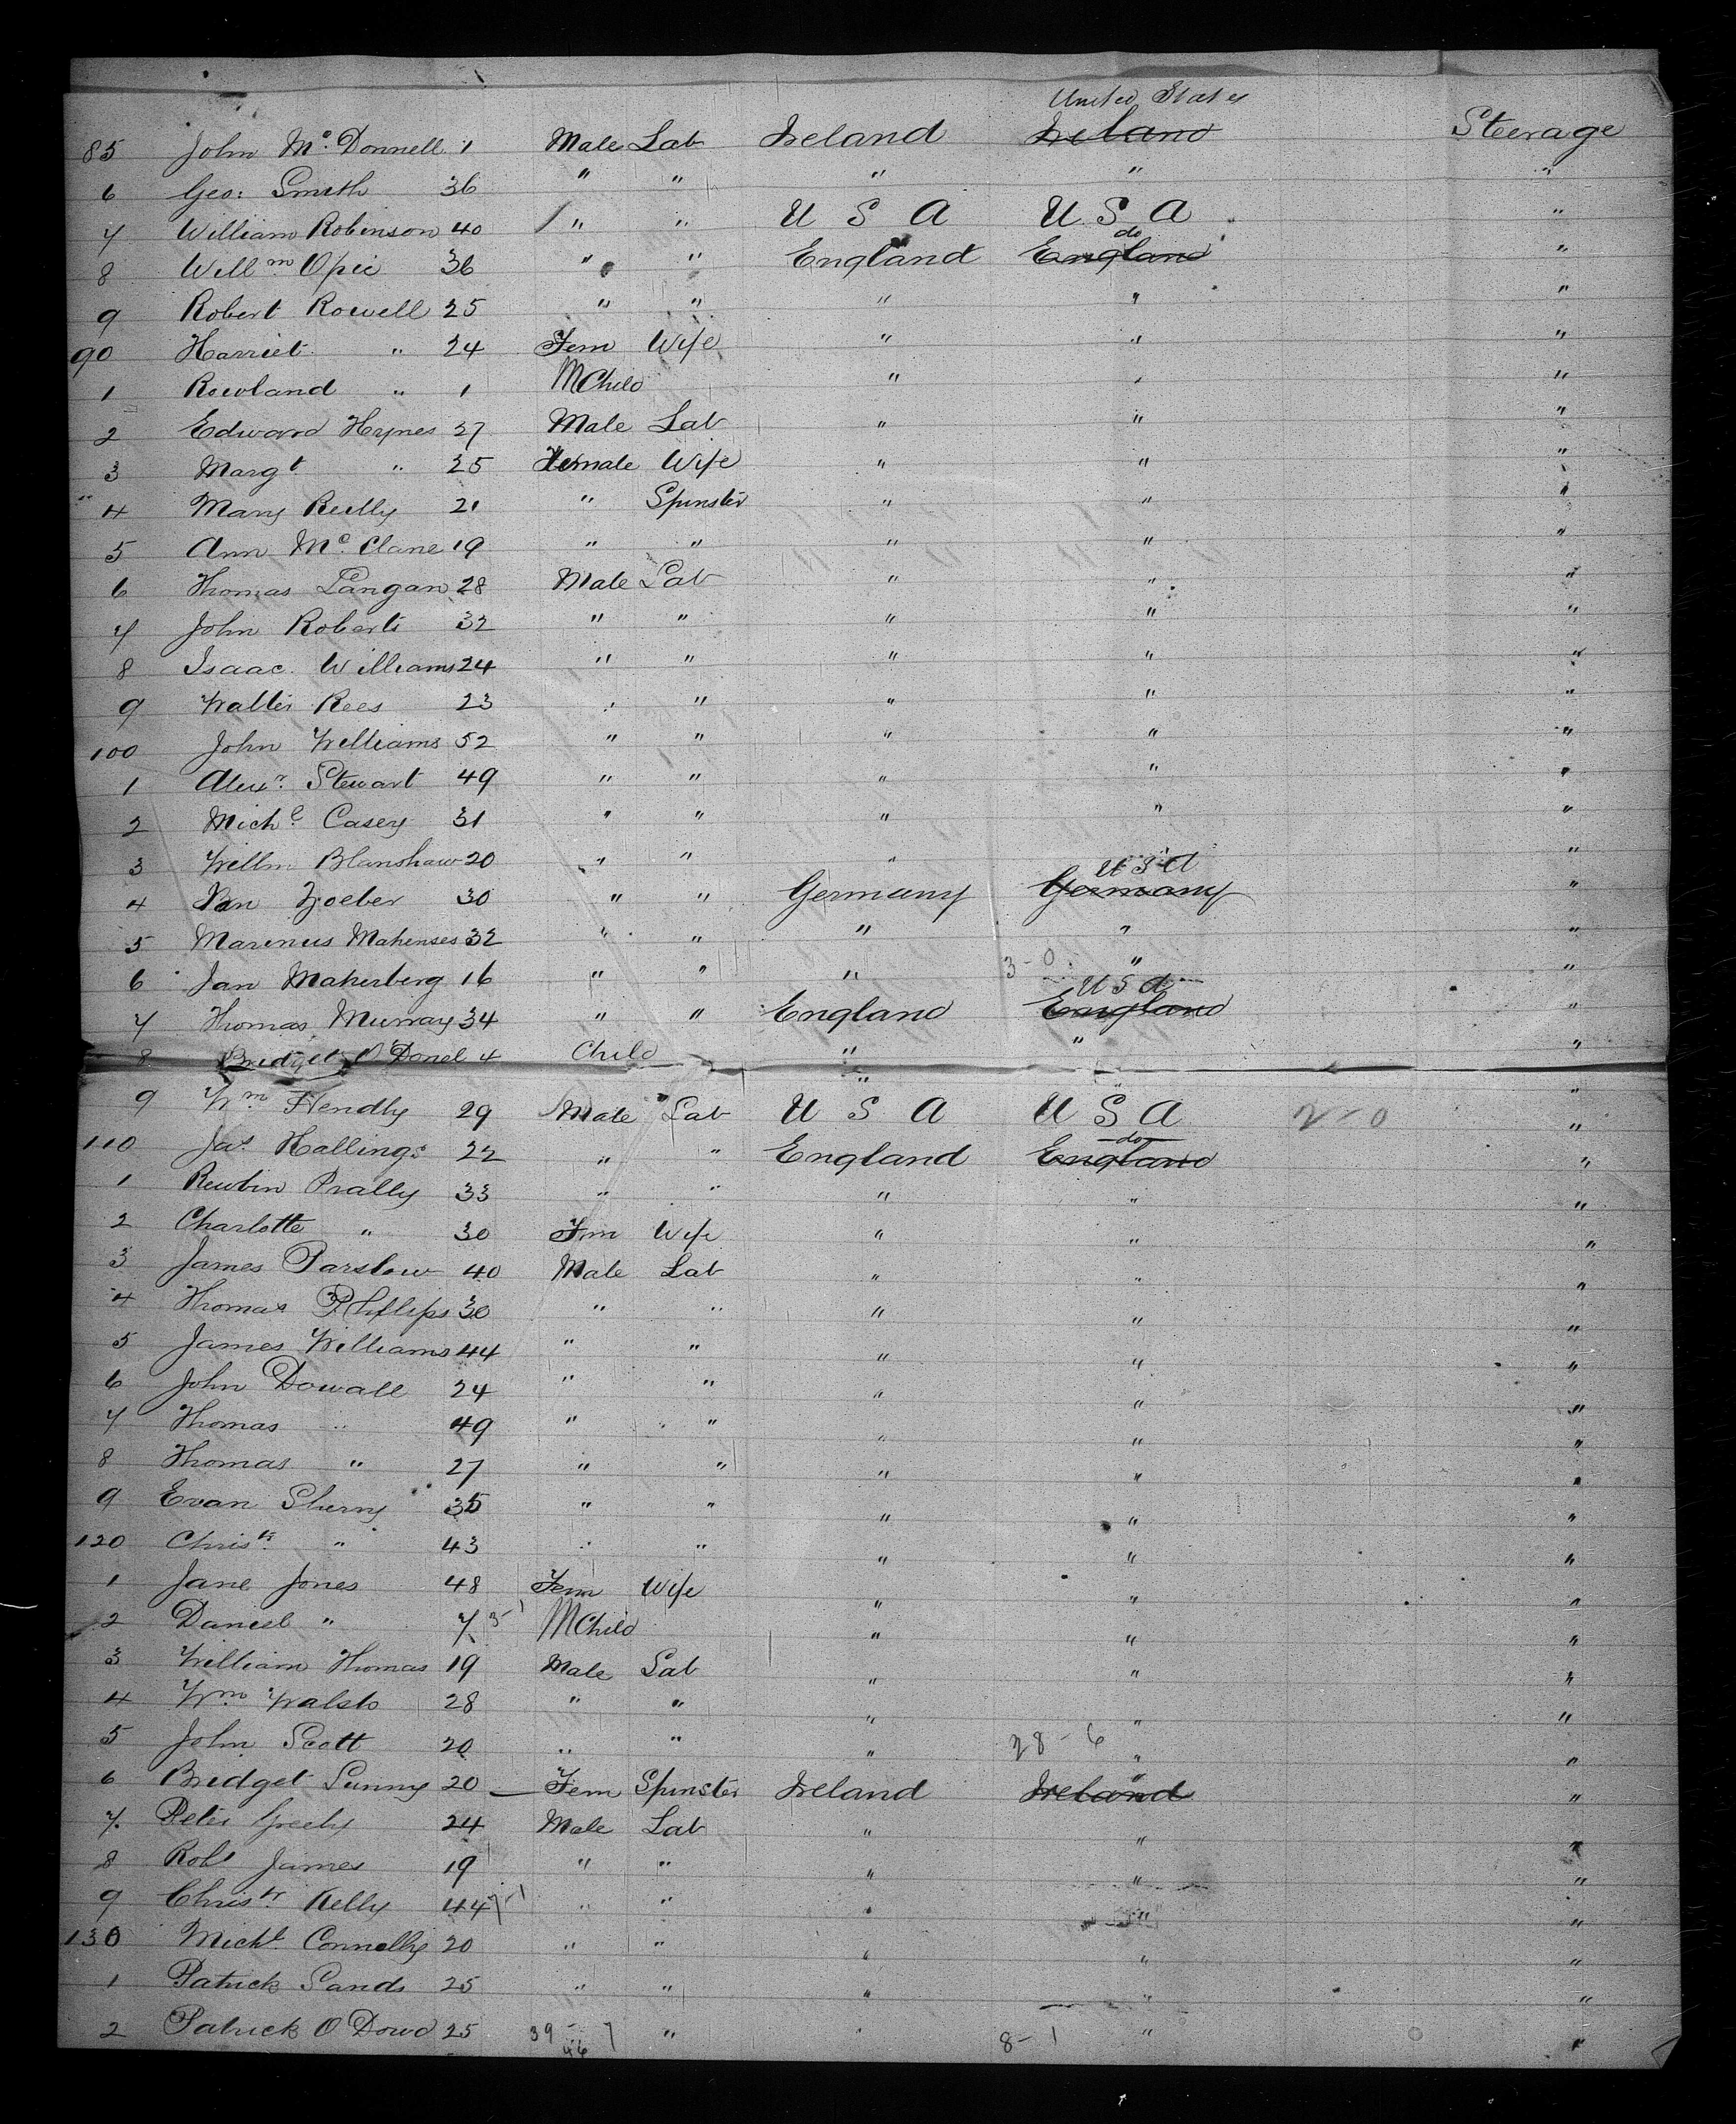 United States
85 John Mc. Donnell 1 Male Lab Ireland Ireland Steerage
6 Geo: Smith 36 " " " " "
7 William Robinson 40 " " U S A U S A "
do
8 Willm Opie 36 " " England England "
9 Robert Rowell 25 " " " " "
90 Harriet " 24 Fem Wife " " "
1 Rowland " 1 M Child " " "
2 Edward Hynes 27 Male Lab " " "
3 Margt " 25 Female Wife " " "
4 Mary Reilly 21 " Spinster " " "
5 Ann Mc. Clane 19 " " " " "
6 Thomas Langan 28 Male Lab " " "
7 John Roberts 32 " " " " "
8 Isaac Williams 24 " " " " "
9 Walter Rees 23 " " " " "
100 John Williams 52 " " " " "
1 Alexr. Stewart 49 " " " " "
2 Michl. Casey 31 " " " " "
3 Willm Blanshaw 20 " " " "
U S A
4 30 " " Germany Germany "
5 Marinus 32 " " " " "
6 Jan 16 " " " 3-0. " "
U S A
7 Thomas Murray 34 " " England England "
8 Bridget O Donel 4 Child " " "
9 Wm Hendly 29 Male Lab U S A U S A 2-0 "
do
110 Jas Hallings 22 " " England England "
1 Rewbin Prally 33 " " " " "
2 Charlotte " 30 Fem Wife " " "
3 James Parslow 40 Male Lab " " "
4 Thomas Phillips 30 " " " " "
5 James Williams 44 " " " " "
6 John Dowall 24 " " " " "
7 Thomas " 49 " " " " "
8 Thomas " 27 " " " " "
9 Evan 35 " " " " "
120 Christr. " 43 " " " " "
1 Jane Jones 48 Fem Wife " " "
2 Daniel " 7 M Child " " "
3 William Thomas 19 Male Lab " " "
4 Wm 28 " " " " "
5 John Scott 20 " " " 28-6 " "
6 Bridget Lunny 20 Fem Spinster Ireland Ireland "
7 Peter 24 Male Lab " " "
8 Robt James 19 " " " " "
9 Christr. Kelly 44 " " " " "
130 Michl. Connelly 20 " " " " "
1 Patrick Sands 25 " " " " "
2 Patrick O Dowd 25 39-7 " " 8-1 " "
46